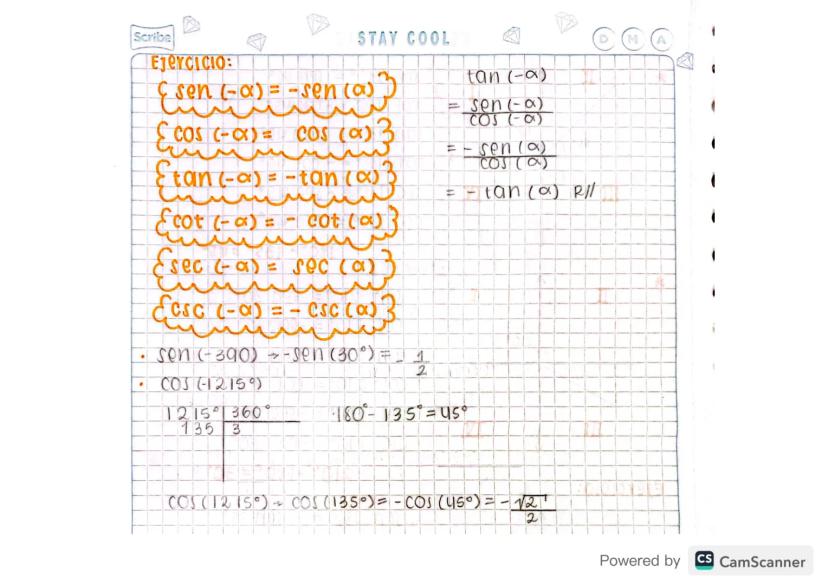 Scribe
STAY COOL
D M A
EJERCICIO:
sen (-α) = -sen (α)
cos (-α) = cos (α)
tan (-α) = -tan (α)
cot (-α) = - cot (α)
sec (-α) = sec (α)
csc (-α) = - csc (α)
tan (-α)
= sen (-α)
cos (-α)
= - sen (α)
cos (α)
= - tan (α) R//
• sen (-390) → -sen (30°) = - 1
2
• cos (-1215°)
1215° | 360°
135 | 3
180° - 135° = 45°
cos (1215°) → cos (135°) = -cos (45°) = - √2
2
Powered by CS CamScanner